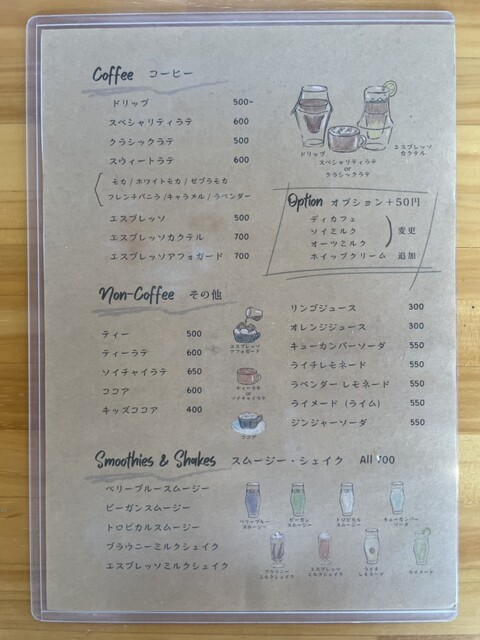 Coffee コーヒー
ドリップ 500~
スペシャリティラテ 600
クラシックラテ 500
スウィートラテ 600
モカ / ホワイトモカ / ゼブラモカ
フレンチバニラ / キャラメル / ラベンダー
エスプレッソ 500
エスプレッソカクテル 700
エスプレッソアフォガード 700
ドリップ
スペシャリティラテ
or
クラシックラテ
エスプレッソ
カクテル
Option オプション+50円
ディカフェ
ソイミルク
オーツミルク
変更
ホイップクリーム 追加
Non-Coffee その他
ティー 500
ティーラテ 600
ソイチャイラテ 650
ココア 600
キッズココア 400
エスプレッソ
アフォガード
ティーラテ
or
ソイチャイラテ
ココア
リンゴジュース 300
オレンジジュース 300
キューカンバーソーダ 550
ライチレモネード 550
ラベンダー レモネード 550
ライメード (ライム) 550
ジンジャーソーダ 550
Smoothies & Shakes スムージー・シェイク All 700
ベリーブルースムージー
ビーガンスムージー
トロピカルスムージー
ブラウニーミルクシェイク
エスプレッソミルクシェイク
ベリーブルー
スムージー
ビーガン
スムージー
トロピカル
スムージー
キューカンバー
ソーダ
ブラウニー
ミルクシェイク
エスプレッソ
ミルクシェイク
ライチ
レモネード
ライメード